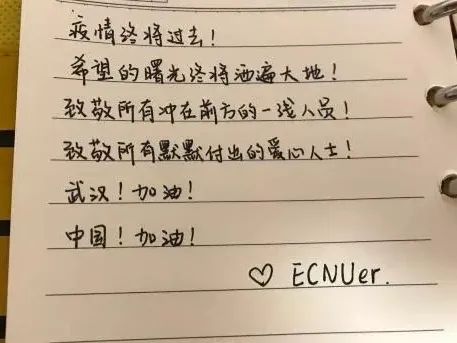 疫情终将过去！
希望的曙光终将洒遍大地！
致敬所有冲在前方的一线人员！
致敬所有默默付出的爱心人士！
武汉！加油！
中国！加油！
♡ ECNUer.